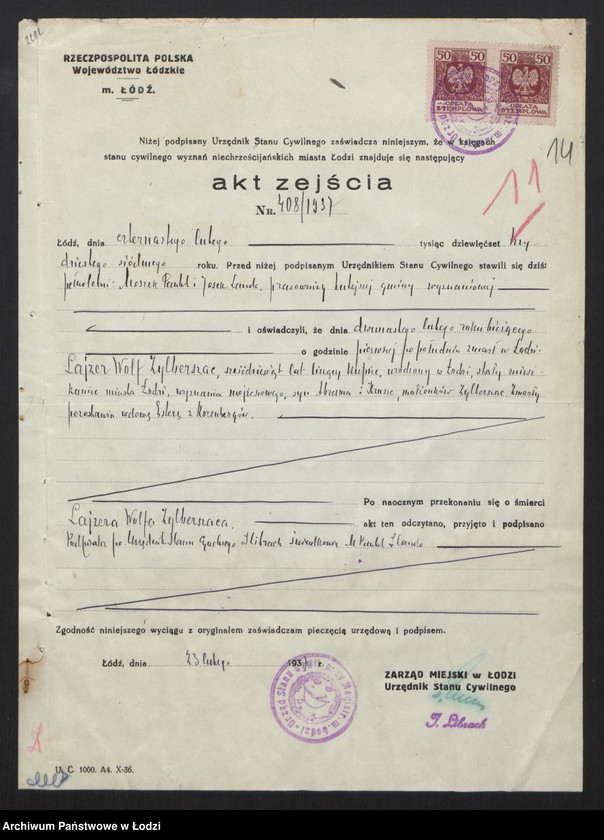 RZECZPOSPOLITA POLSKA
Województwo Łódzkie
m. ŁÓDŹ.
50 50 50 50
OPŁATA STEMPLOWA OPŁATA STEMPLOWA
14
11
Niżej podpisany Urzędnik Stanu Cywilnego zaświadcza niniejszym, że w księgach
stanu cywilnego wyznań niechrześcijańskich miasta Łodzi znajduje się następujący
akt zejścia
NR. 408/1937
Łódź, dnia czternastego lutego tysiąc dziewięćset trzy-
dziestego siódmego roku. Przed niżej podpisanym Urzędnikiem Stanu Cywilnego stawili się dziś:
pełnoletni: Moszek i Josek pracownicy tutejszej gminy wyznaniowej
i oświadczyli, że dnia dwunastego lutego roku bieżącego
o godzinie pierwszej po południu zmarł w Łodzi:
Lajzer Wolf Zylberszac, sześćdziesiąt lat liczący kupiec, urodzony w Łodzi, stały miesz-
kaniec miasta Łodzi, wyznania mojżeszowego, syn Abrama i małżonków Zylberszac. Zmarły
pozostawił wdowę Esterę z Rozenbergów.
Po naocznym przekonaniu się o śmierci
Lajzera Wolfa Zylberszaca, akt ten odczytano, przyjęto i podpisano
Urzędnik Stanu Cywilnego I Librach świadkowie M
Zgodność niniejszego wyciągu z oryginałem zaświadczam pieczęcią urzędową i podpisem.
Łódź, dnia 23 lutego 1937 r.
ZARZĄD MIEJSKI w ŁODZI
Urzędnik Stanu Cywilnego
I. Librach
U. C. 1000. A4. X-36.
Archiwum Państwowe w Łodzi